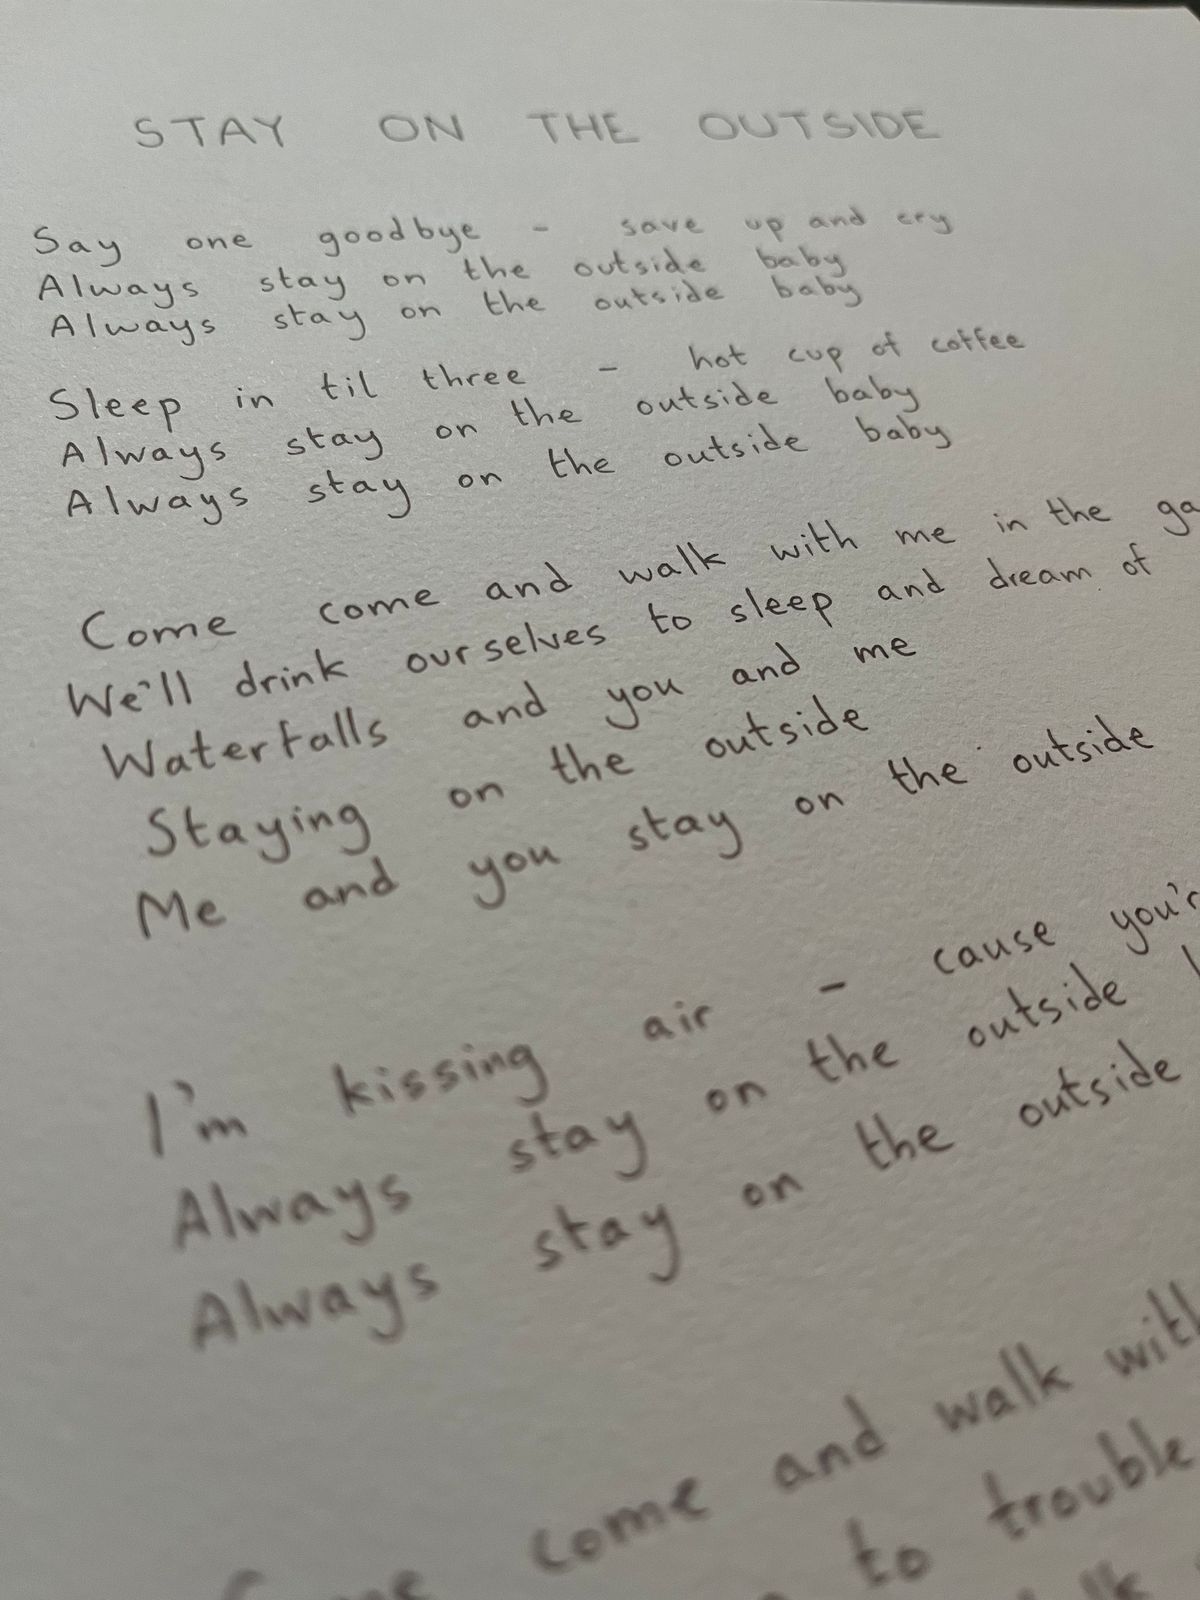 STAY ON THE OUTSIDE
Say one goodbye - save up and cry
Always stay on the outside baby
Always stay on the outside baby
Sleep in til three - hot cup of coffee
Always stay on the outside baby
Always stay on the outside baby
Come come and walk with me in the
We'll drink ourselves to sleep and dream of
Waterfalls and you and me
Staying on the outside
Me and you stay on the outside
I'm kissing air - cause
Always stay on the outside
Always stay on the outside
come and walk
to trouble